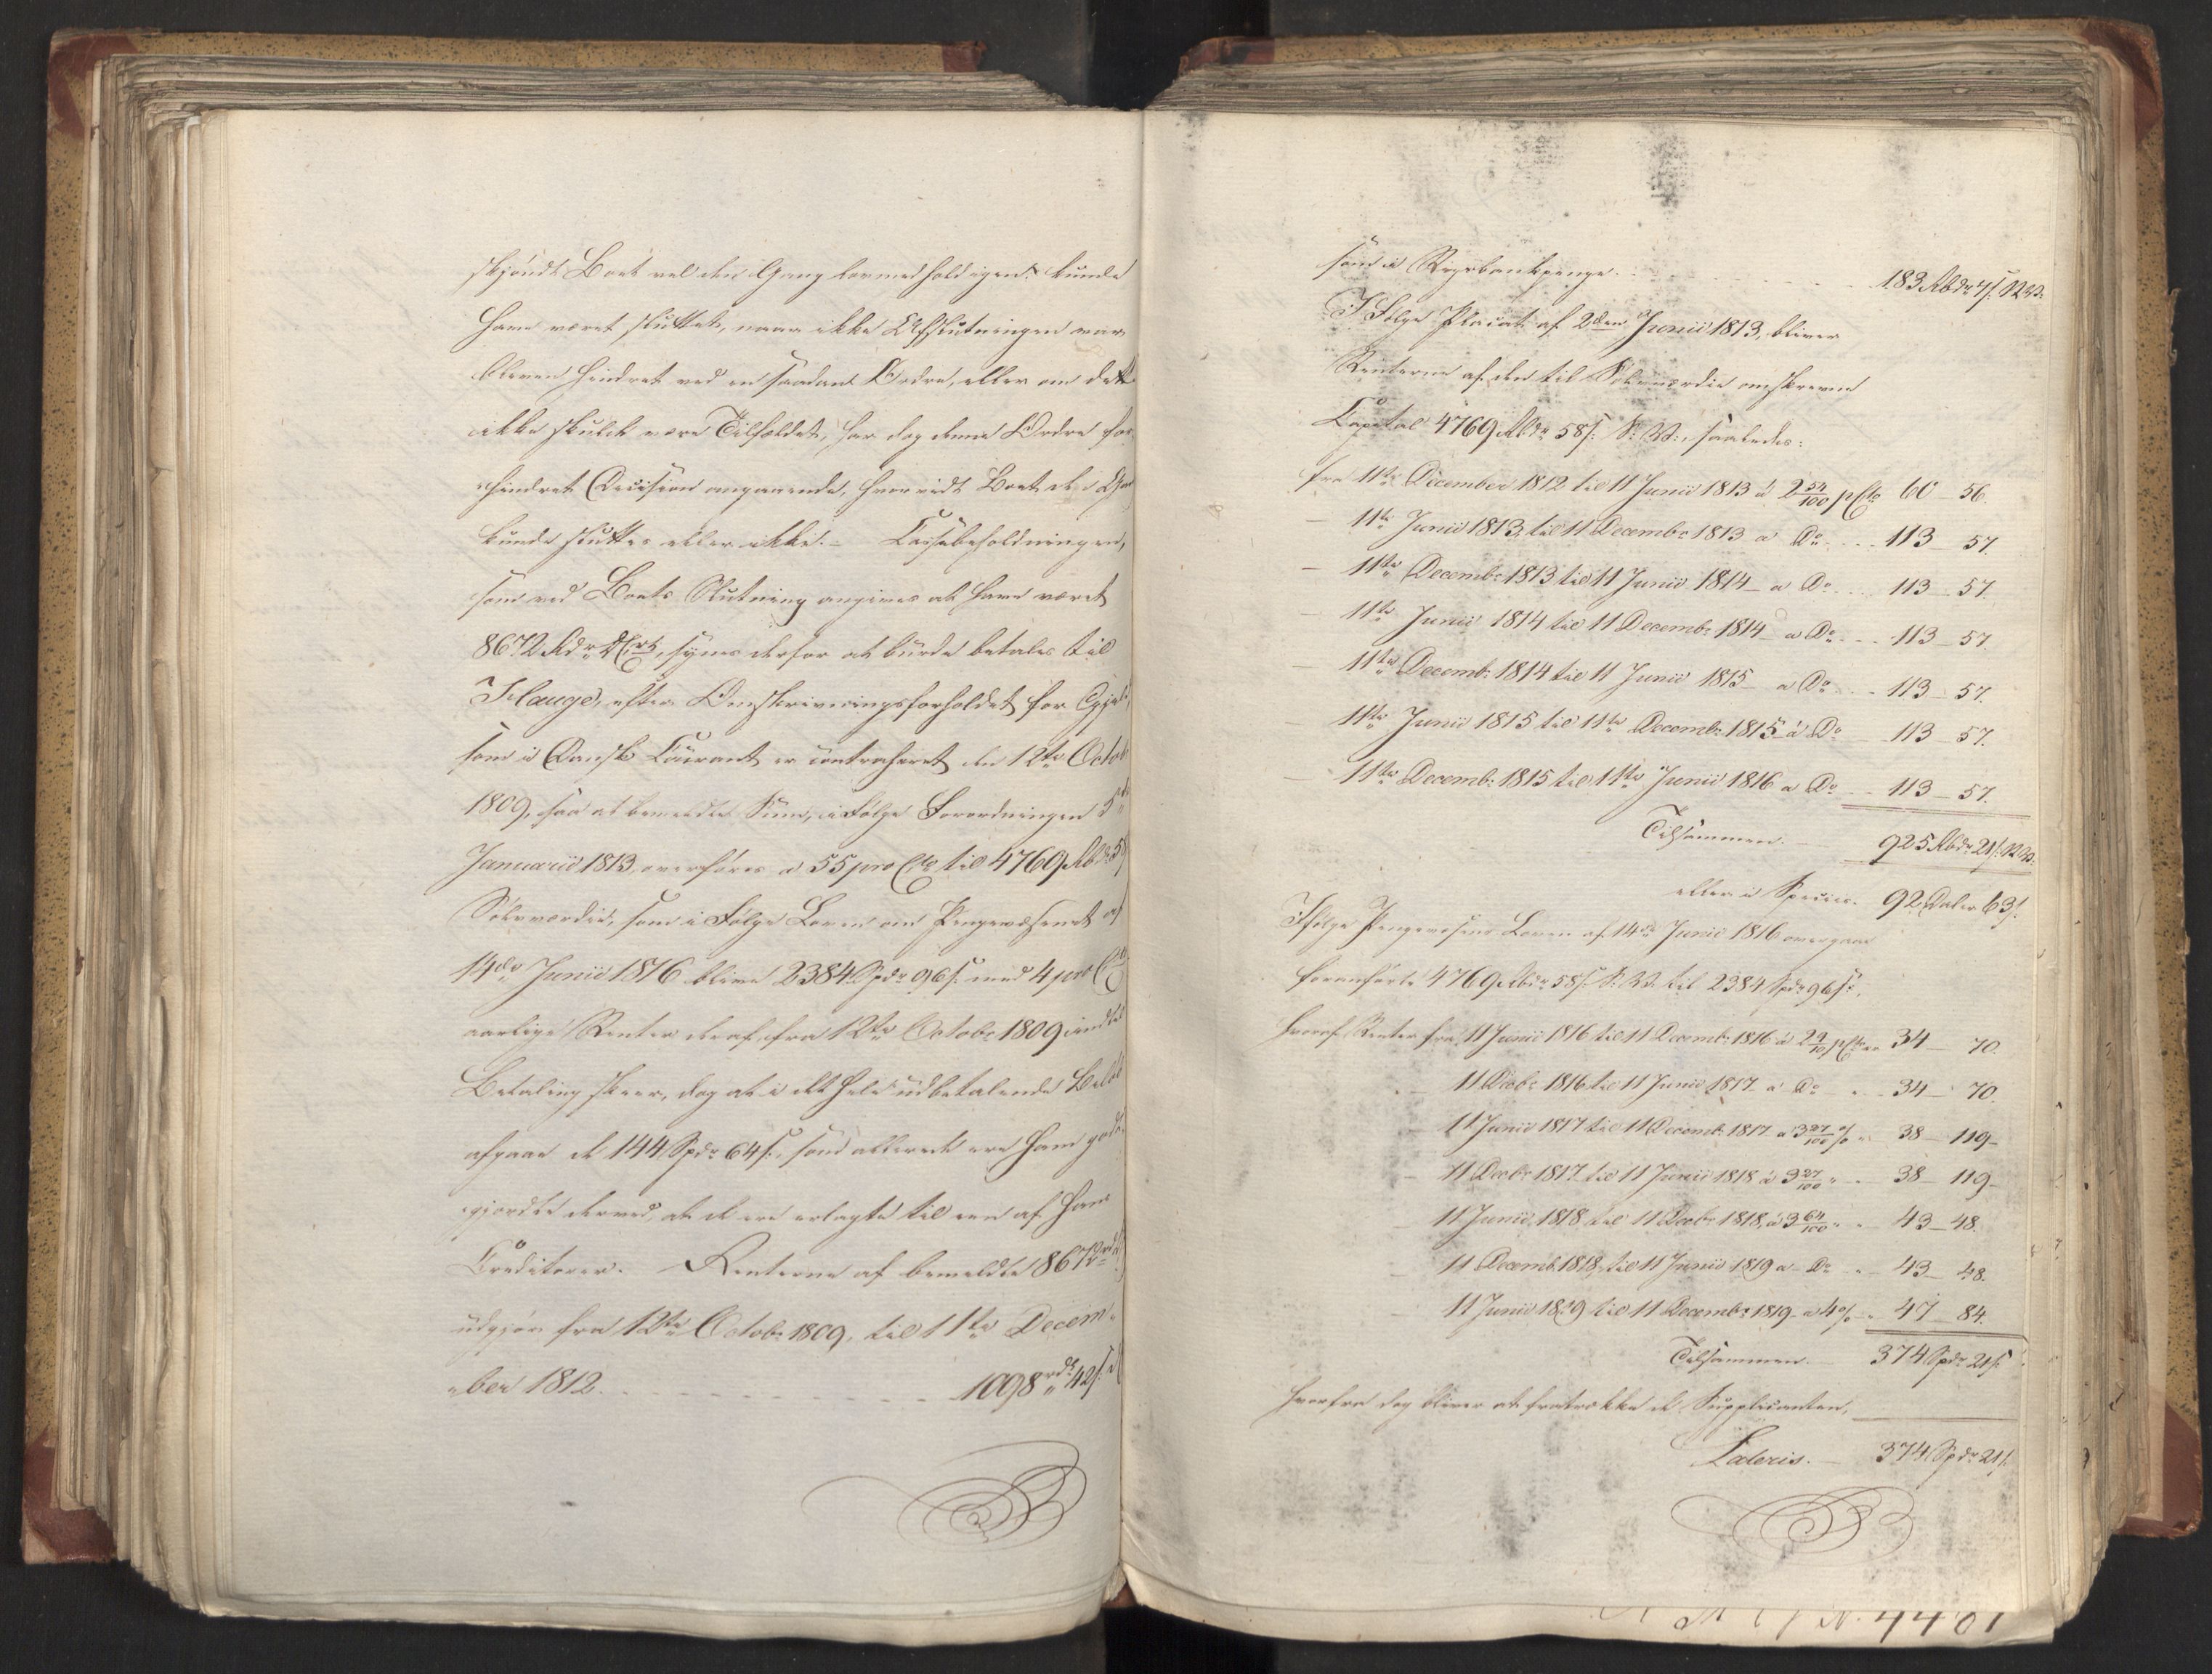 skjöndt Boet vel den Gang kunde
have været sluttet, naar ikke Afslutningen var
bleven hindret ved en saadan Ordre, eller om dette
ikke skulde være Tilfældet, har dog denne Ordre for-
hindret Decision angaaende, hvorvidt Boet da
kunde sluttes eller ikke. – Cassabeholdningen,
som ved Boets Slutning angives at have været
8672 Rdr D Crt, synes derfor at burde betales til
Hauge, efter Omskrivningsforholdet for Gjæld,
som i Dansk Courant er contraheret den 12te Octob
1809, saa at bemeldte Sum, i Følge Forordningen 5te
Januarii 1813 overføres a 55 pro Cto til 4769 Rbdr 58
Sølvværdie, som i Følge Loven om Pengevæsenet af
14de Junii 1816 blive 2384 Spdr 96 s. med 4 pro Ct
aarlige Renter deraf, fra 12te Octobr 1809 indtil
Betaling skeer, dog at i det hele udbetalende Beløb
afgaae de 144 Spdr 64 s., som allerede ere ham god-
gjordte derved, at de ere erlagte til een af hans
Creditorer. – Renterne af bemeldte 8672 rd
udgjør fra 12te Octobr 1809, til 11te Decem-
ber 1812 . . . 1098 rdr 42 s.
som i Rigsbankpenge . . . 183 Rbdr 7 s. N.V.
I Følge Placat af 2den Junii 1813, bliver
Renterne af den til Sølvværdie omskrevne
Capital 4769 Rbdr 58 s. S. V., saaledes:
fra 11te December 1812 til 11 Junii 1813 à 2 54/100 pCto 60 – 56.
– 11te Junii 1813, til 11 Decembr 1813 a Do . . . 113 – 57.
– 11te Decembr 1813 til 11 Junii 1814 – a Do . . . 113 – 57.
– 11te Junii 1814 til 11 Decembr 1814 – a Do . . . 113 – 57.
– 11te Decembr 1814 til 11 Junii 1815 – a Do . . . 113 – 57.
– 11te Junii 1815 til 11te Decembr 1815 – à Do – 113 – 57.
– 11te Decembr 1815 til 11te Junii 1816 a Do – 113 – 57.
Tilsammen. – 925 Rbdr 21 s. N.V.
eller i Species. 92 Daler 63 s.
Ifølge Pengevæsens Loven af 14de Junii 1816 overgaae
foranførte 4769 Rbdr 58 s. S. V. til 2384 Spdr 96 s.,
hvoraf Renter fra 11 Junii 1816 til 11 Decembr 1816 à 2 9/10 pCto er 34 – 70.
– 11 Decbr 1816 til 11 Junii 1817 – a Do – 34 – 70.
– 11 Junii 1817 til 11 Decembr 1817 a 3 27/100 % 38 – 119 –
– 11 Decbr 1817 til 11 Junii 1818 à 3 27/100 " 38 – 119 –
– 11 Junii 1818 til 11 Decbr 1818, à 3 64/100 " 43 – 48.
– 11 Decemb. 1818, til 11 Junii 1819 a – Do – 43 – 48.
– 11 Junii 1819 til 11 Decembr 1819 – a 4 % – 47 – 84.
Tilsammen. – 374 Spdr 21 s.
hvorfra dog bliver at fratrække de Supplicanten,
Lateris. – 374 Spdr 21 s.
4401